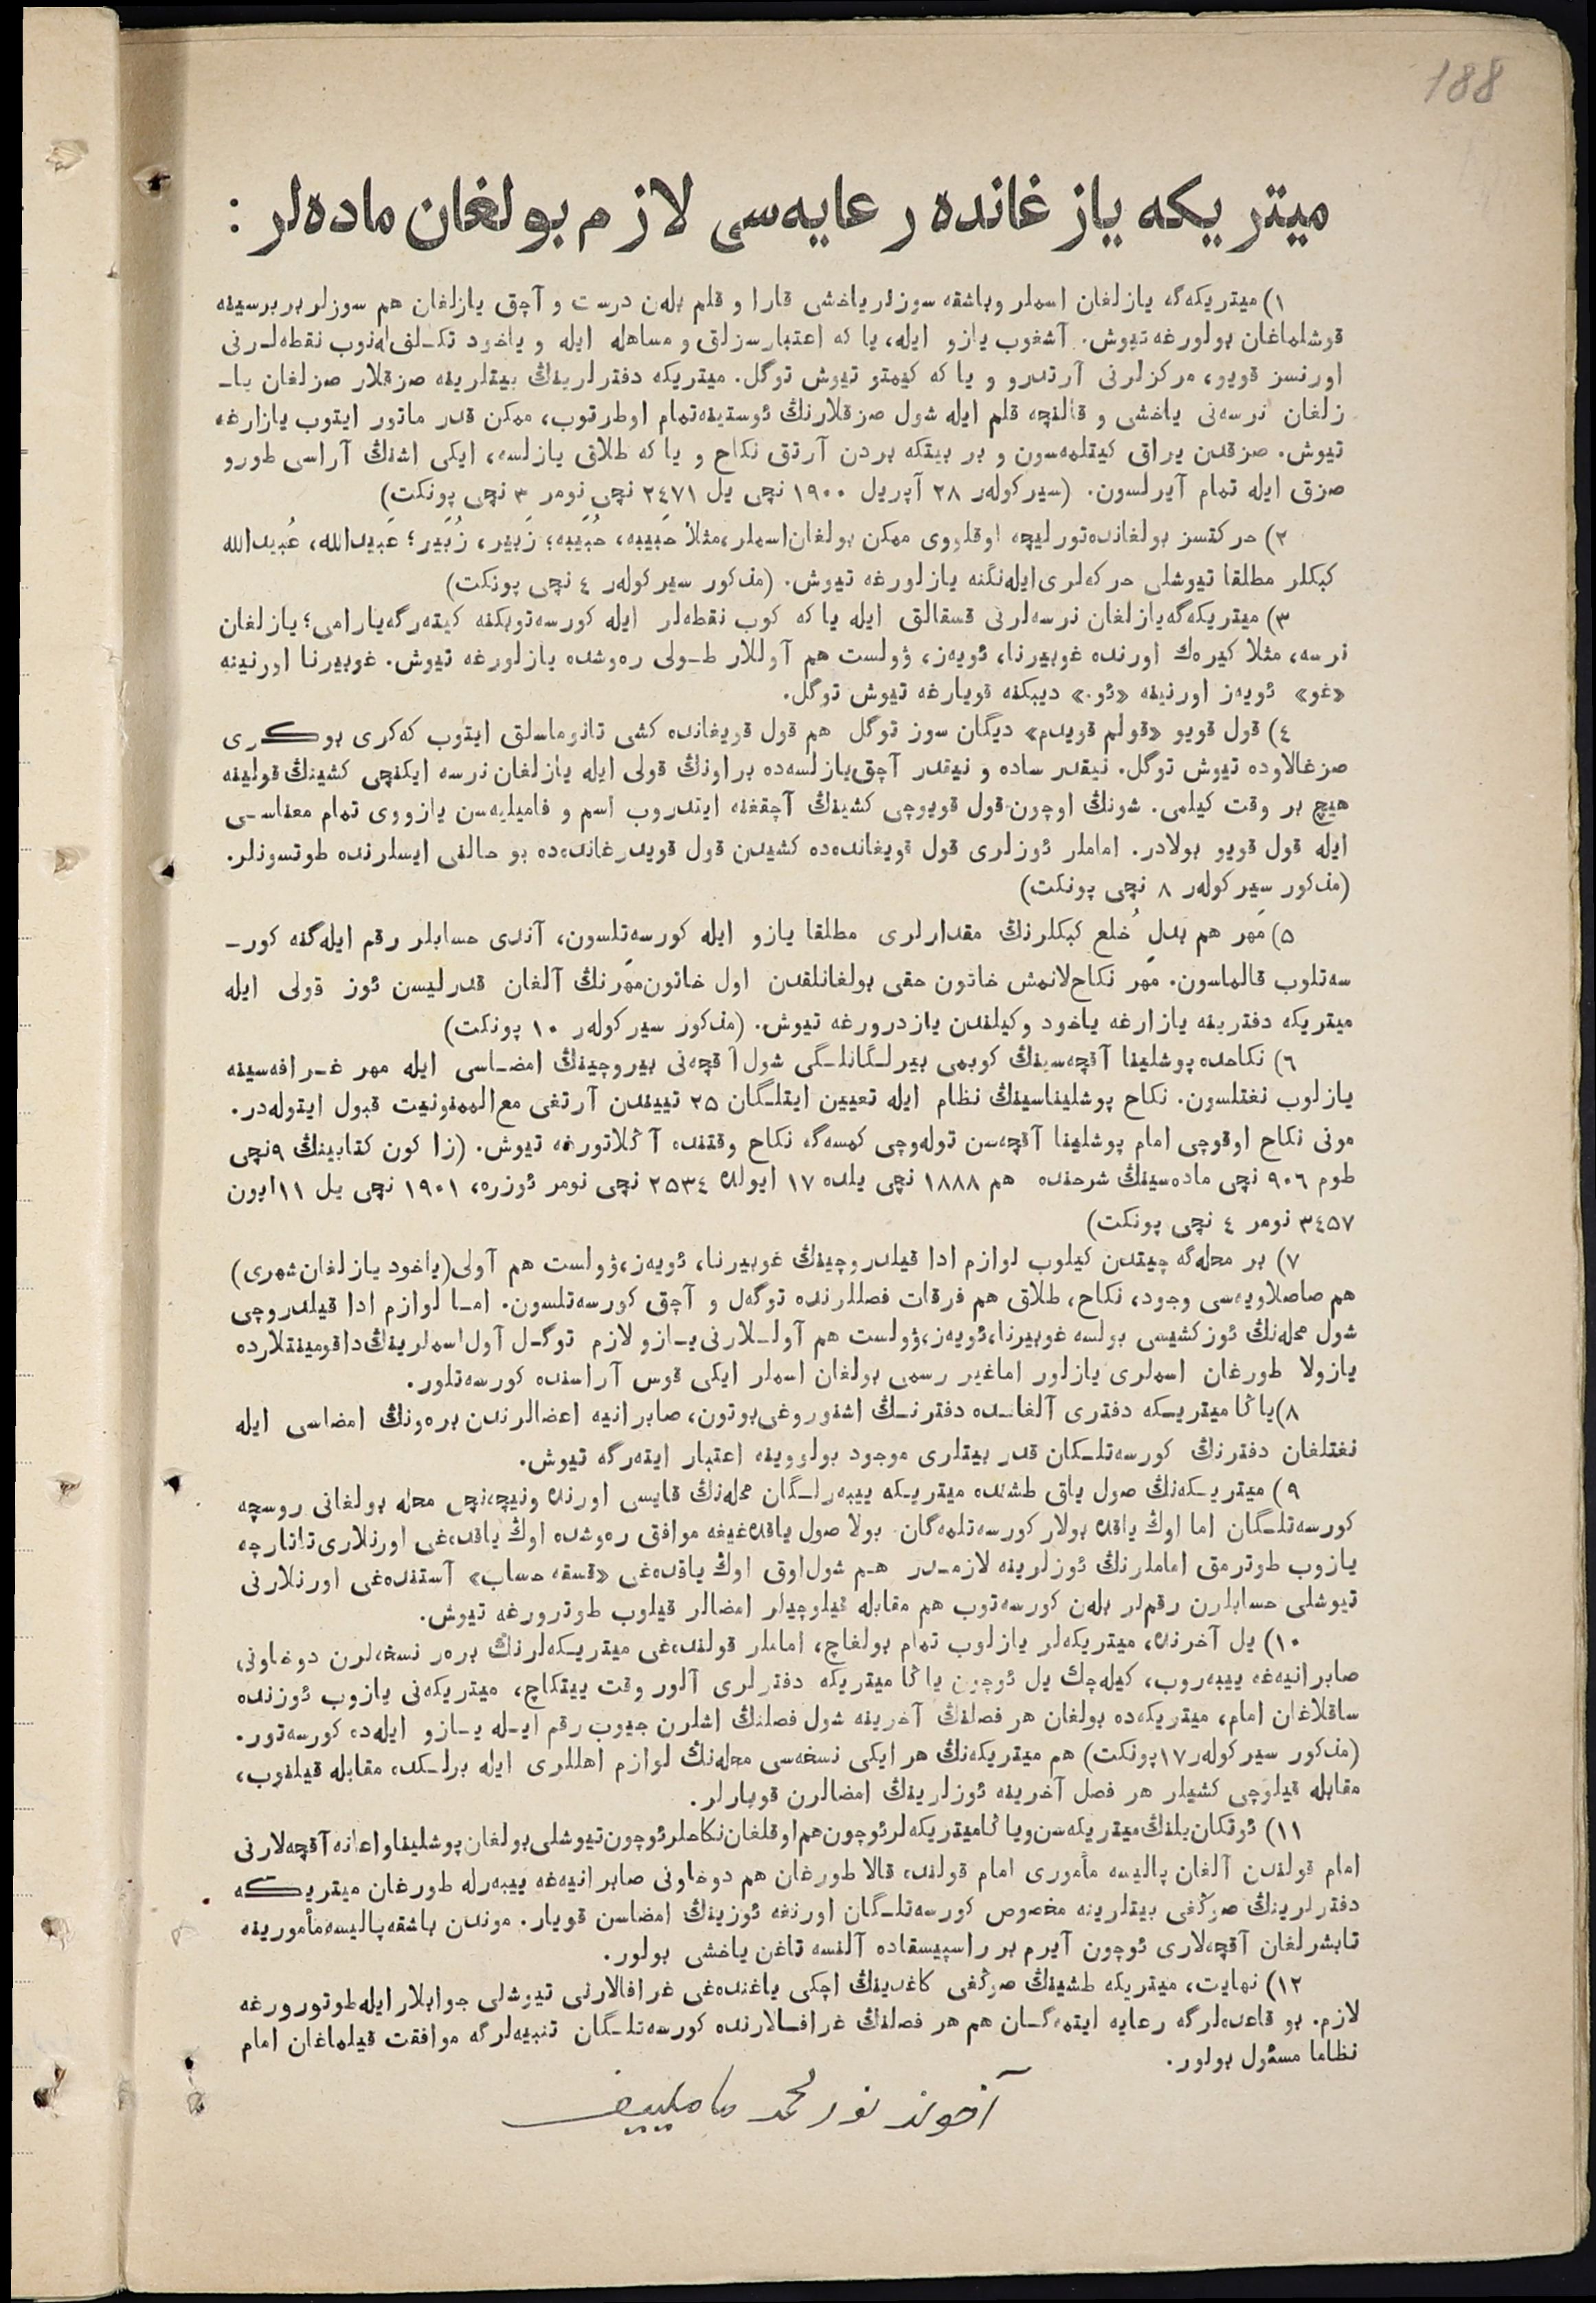 188
میتریکه یازغانده رعایه‌سی لازم بولغان ماده‌لر :
١) میتریکه‌گه یازلغان اسملر وباشقه سوزلر یاخشی قارا و قلم بله‌ن درست و آچق یازلغان هم سوزلر بر برسینه
قوشلماغان بولورغه تیوش. آشغوب یازو ایله، یا که اعتبارسزلق و مساهله ایله و یاخود تکـلفی‌له‌نوب نقطه‌لـرنی
اورنسز قویو، مرکزلرنی آرتدرو و یا که کیمتو تیوش توگل. میتریکه دفترلرینڭ بیتلرینه صزقلار صزلغان یاـ
زلغان نرسه‌نی یاخشی و قالنچه قلم ایله شول صزقلارنڭ ئوستینه تمام اوطرتوب، ممکن قدر ماتور ایتوب یازارغه
تیوش. صزقدن یراق کیتلمه‌سون و بر بیتکه بردن آرتق نکاح و یا که طلاق یازلسه، ایکی اشنڭ آراسی طورو
صزق ایله تمام آیرلسون. (سیرکوله‌ر ٢٨ آپریل ١٩٠٠ نچی یل ٢٤٧١ نچی نومر ٣ نچی پونکت)
٢) حرکتسز بولغانده تورلیچه اوقلووی ممکن بولغان اسملر، مثلا حَبیبه، حُبَیبه؛ زَبیر، زُبَیر؛ عَبیدالله، عُبیدالله
کبکلر مطلقا تیوشلی حرکه‌لری ایله‌نگنه یازلورغه تیوش. (مذکور سیرکوله‌ر ٤ نچی پونکت)
٣) میتریکه‌گه یازلغان نرسه‌لرنی قسقالق ایله یا که کوب نقطه‌لر ایله کورسه‌توبکنه کیته‌رگه یارامی؛ یازلغان
نرسه، مثلا کیره‌ك اورنده غوبیرنا، ئویه‌ز، ۋولست هم آوللار طـولی ره‌وشده یازلورغه تیوش. غوبیرنا اورنینه
«غو» ئویه‌ز اورنینه «ئو.» دیبکنه قویارغه تیوش توگل.
٤) قول قویو «قولم قویدم» دیگان سوز توگل هم قول قویغانده کشی تانوماسلق ایتوب که‌کری بوکری
صزغالاوده تیوش توگل. نیقدر ساده و نیقدر آچق یازلسه‌ده براونڭ قولی ایله یازلغان نرسه ایکنچی کشینڭ قولینه
هیچ بر وقت کیلمی. شونڭ اوچون قول قویوچی کشینڭ آچقغنه ایتدروب اسم و فامیلیه‌سن یازووی تمام معناسـی
ایله قول قویو بولادر. اماملر ئوزلری قول قویغانده‌ده کشیدن قول قویدرغانده‌ده بو حالنی ایسلرنده طوتسونلر.
(مذکور سیرکوله‌ر ٨ نچی پونکت)
۵) مَهر هم بدل خُلع کبکلرنڭ مقدارلری مطلقا یازو ایله کورسه‌تلسون، آندی حسابلر رقم ایله‌گنه کورـ
سه‌تلوب قالماسون. مَهر نکاح‌لانمش خاتون حقی بولغانلقدن اول خاتون مَهرنڭ آلغان قدرلیسن ئوز قولی ایله
میتریکه دفترینه یازارغه یاخود وکیلندن یازدرورغه تیوش. (مذکور سیرکوله‌ر ١٠ پونکت)
٦) نکاحده پوشلینا آقچه‌سینڭ کوبمی بیرلـگانلـگی شول آقچه‌نی بیروچینڭ امضـاسی ایله مهر غـرافه‌سینه
یازلوب نغتلسون. نکاح پوشلیناسینڭ نظام ایله تعیین ایتلـگان ٢۵ تییندن آرتغی مع‌الممنونیت قبول ایتوله‌در.
مونی نکاح اوقوچی امام پوشلینا آقچه‌سن توله‌وچی کمسه‌گه نکاح وقتنده آڭلاتورغه تیوش. (زاکون کتابینڭ ٩نچی
طوم ٩٠٦ نچی ماده‌سینڭ شرحنده هم ١٨٨٨ نچی یلده ١٧ ایولده ٢۵٣٤ نچی نومر ئوزره، ١٩٠١ نچی یل ١١ ایون
٣٤۵٧ نومر ٤ نچی پونکت)
٧) بر محله‌گه چیتدن کیلوب لوازم ادا قیلدروچینڭ غوبیرنا، ئویه‌ز، ۋولست هم آولی (یاخود یازلغان شهری)
هم صاصلاویه‌سی وجود، نکاح، طلاق هم فرقات فصللرنده توگه‌ل و آچق کورسه‌تلسون. امـا لوازم ادا قیلدروچی
شول محله‌نڭ ئوز کشیسی بولسه غوبیرنا، ئویه‌ز، ۋولست هم آولـلارنی یـازو لازم توگـل آول اسملرینڭ داقومینتلارده
یازولا طورغان اسملری یازلور اما غیر رسمی بولغان اسملر ایکی قوس آراسنده کورسه‌تلور.
٨) یاڭا میتریـکه دفتری آلغاـنده دفترنـڭ اشنوروغی بوتون، صابرانیه اعضالرندن بره‌ونڭ امضاسی ایله
نغتلغان دفترنڭ کورسه‌تلـکان قدر بیتلری موجود بولووینه اعتبار ایته‌رگه تیوش.
٩) میتریـکه‌نڭ صول یاق طشنده میتریـکه ییبه‌رلـگان محله‌نڭ قایسی اورنده ونیچه‌نچی محله بولغانی روسچه
کورسه‌تلـگان اما اوڭ یاقده بولار کورسه‌تلمه‌گان. بولا صول یاقده‌غیغه موافق ره‌وشده اوڭ یاقده‌غی اورنلاری تاتارچه
یازوب طوترمق اماملرنڭ ئوزلرینه لازمـدر هـم شول‌اوق اوڭ یاقده‌غی «قسقه حساب» آستنده‌غی اورنلارنی
تیوشلی حسابلرن رقم‌لر بله‌ن کورسه‌توب هم مقابله قیلوچیلر امضالر قیلوب طوترورغه تیوش.
١٠) یل آخرنده، میتریکه‌لر یازلوب تمام بولغاچ، اماملر قولنده‌غی میتریـکه‌لرنڭ بره‌ر نسخه‌لرن دوخاونی
صابرانیه‌غه ییبه‌روب، کیله‌چك یل ئوچون یاڭا میتریکه دفترلری آلور وقت ییتکاچ، میتریکه‌نی یازوب ئوزنده
ساقلاغان امام، میتریکه‌ده بولغان هر فصلنڭ آخرینه شول فصلنڭ اشلرن جیوب رقم ایـله یـازو ایله‌ده کورسه‌تور.
(مذکور سیرکوله‌ر ١٧ پونکت) هم میتریکه‌نڭ هر ایکی نسخه‌سی محله‌نڭ لوازم اهللری ایله برلـکده مقابله قیلنوب،
مقابله قیلوچی کشیلر هر فصل آخرینه ئوزلرینڭ امضالرن قویارلر.
١١) ئوتکان یلنڭ میتریکه‌سن ویاڭا میتریکه‌لر ئوچون هم اوقلغان نکاحلر ئوچون تیوشلی بولغان پوشلینا و اعانه آقچه‌لارنی
امام قولندن آلغان پالیسه مأموری امام قولنده قالا طورغان هم دوخاونی صابرانیه‌غه ییبه‌رله طورغان میتریکه
دفترلرینڭ صوڭغی بیتلرینه مخصوص کورسه‌تلـگان اورنغه ئوزینڭ امضاسن قویار. موندن باشقه پالیسه مأمورینه
تابشرلغان آقچه‌لاری ئوچون آیرم بر راسپیسقاده آلنسه تاغن یاخشی بولور.
١٢) نهایت، میتریکه طشینڭ صوڭغی کاغدینڭ اچکی یاغنده‌غی غرافالارنی تیوشلی جوابلار ایله طوتورورغه
لازم. بو قاعده‌لرگه رعایه ایتمه‌گـان هم هر فصلنڭ غرافـالارنده کورسه‌تلـگان تنبیه‌لرگه موافقت قیلماغان امام
نظاما مسئول بولور.
آخوند نور محمد ماملییف